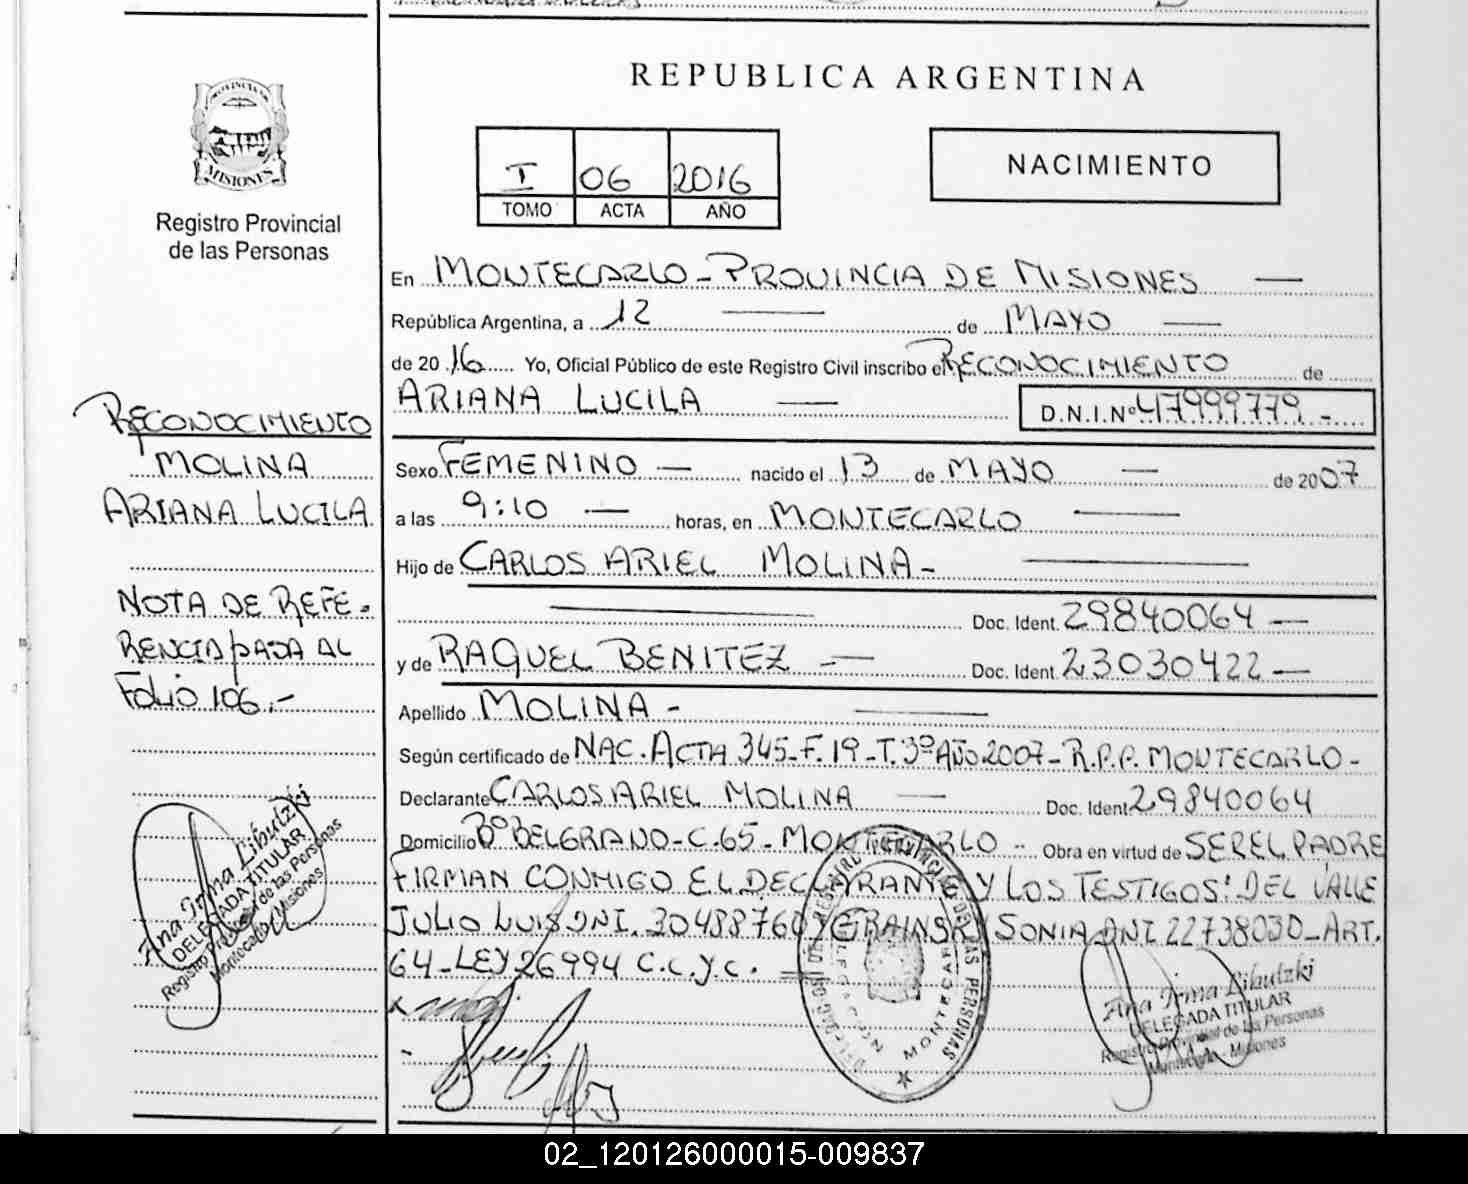 REPUBLICA ARGENTINA
PROVINCIA DE
MISIONES
Registro Provincial
de las Personas
I 06 2016
TOMO ACTA AÑO
NACIMIENTO
En MONTECARLO - PROVINCIA DE MISIONES —
República Argentina, a 12 — de MAYO —
de 2016 Yo, Oficial Público de este Registro Civil inscribo el RECONOCIMIENTO de
ARIANA LUCILA — D.N.I.Nº 47999779.-
RECONOCIMIENTO
MOLINA
ARIANA LUCILA
NOTA DE REFE-
RENCIA PASA AL
FOLIO 106.-
Sexo FEMENINO — nacido el 13 de MAYO — de 2007
a las 9:10 — horas, en MONTECARLO —
Hijo de CARLOS ARIEL MOLINA -
Doc. Ident. 29840064 —
y de RAQUEL BENITEZ - — Doc. Ident. 23030422 —
Apellido MOLINA -
Según certificado de NAC. ACTA 345-F.19-T.3º AÑO 2007-R.P.P. MONTECARLO-
Declarante CARLOS ARIEL MOLINA — Doc. Ident 29840064
Domicilio Bº BELGRANO-C.65-MONTECARLO - Obra en virtud de SER EL PADRE
FIRMAN CONMIGO EL DECLARANTE Y LOS TESTIGOS: DEL VALLE
JULIO LUIS DNI. 30488760 Y GRAINSKY SONIA DNI 22738030-ART.
64-LEY 26994 C.C.Y.C.
Ana Irma Libutzki
DELEGADA TITULAR
Registro Provincial de las Personas
Montecarlo - Misiones
MONTECARLO
Ana Irma Libutzki
DELEGADA TITULAR
Registro Provincial de las Personas
Montecarlo - Misiones
02_120126000015-009837